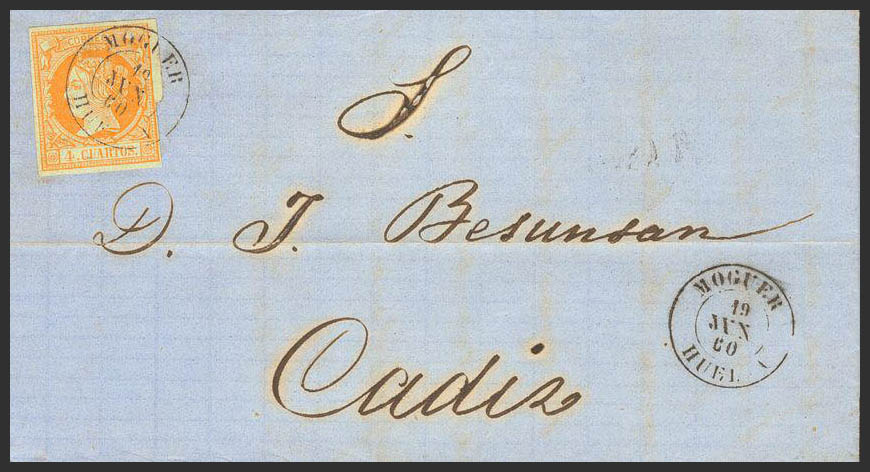 MOGUER
19
JUN
60
HUE
4. CUARTOS.
S.
D. J. Besunsan
Cadiz
MOGUER
19
JUN
60
HUEL